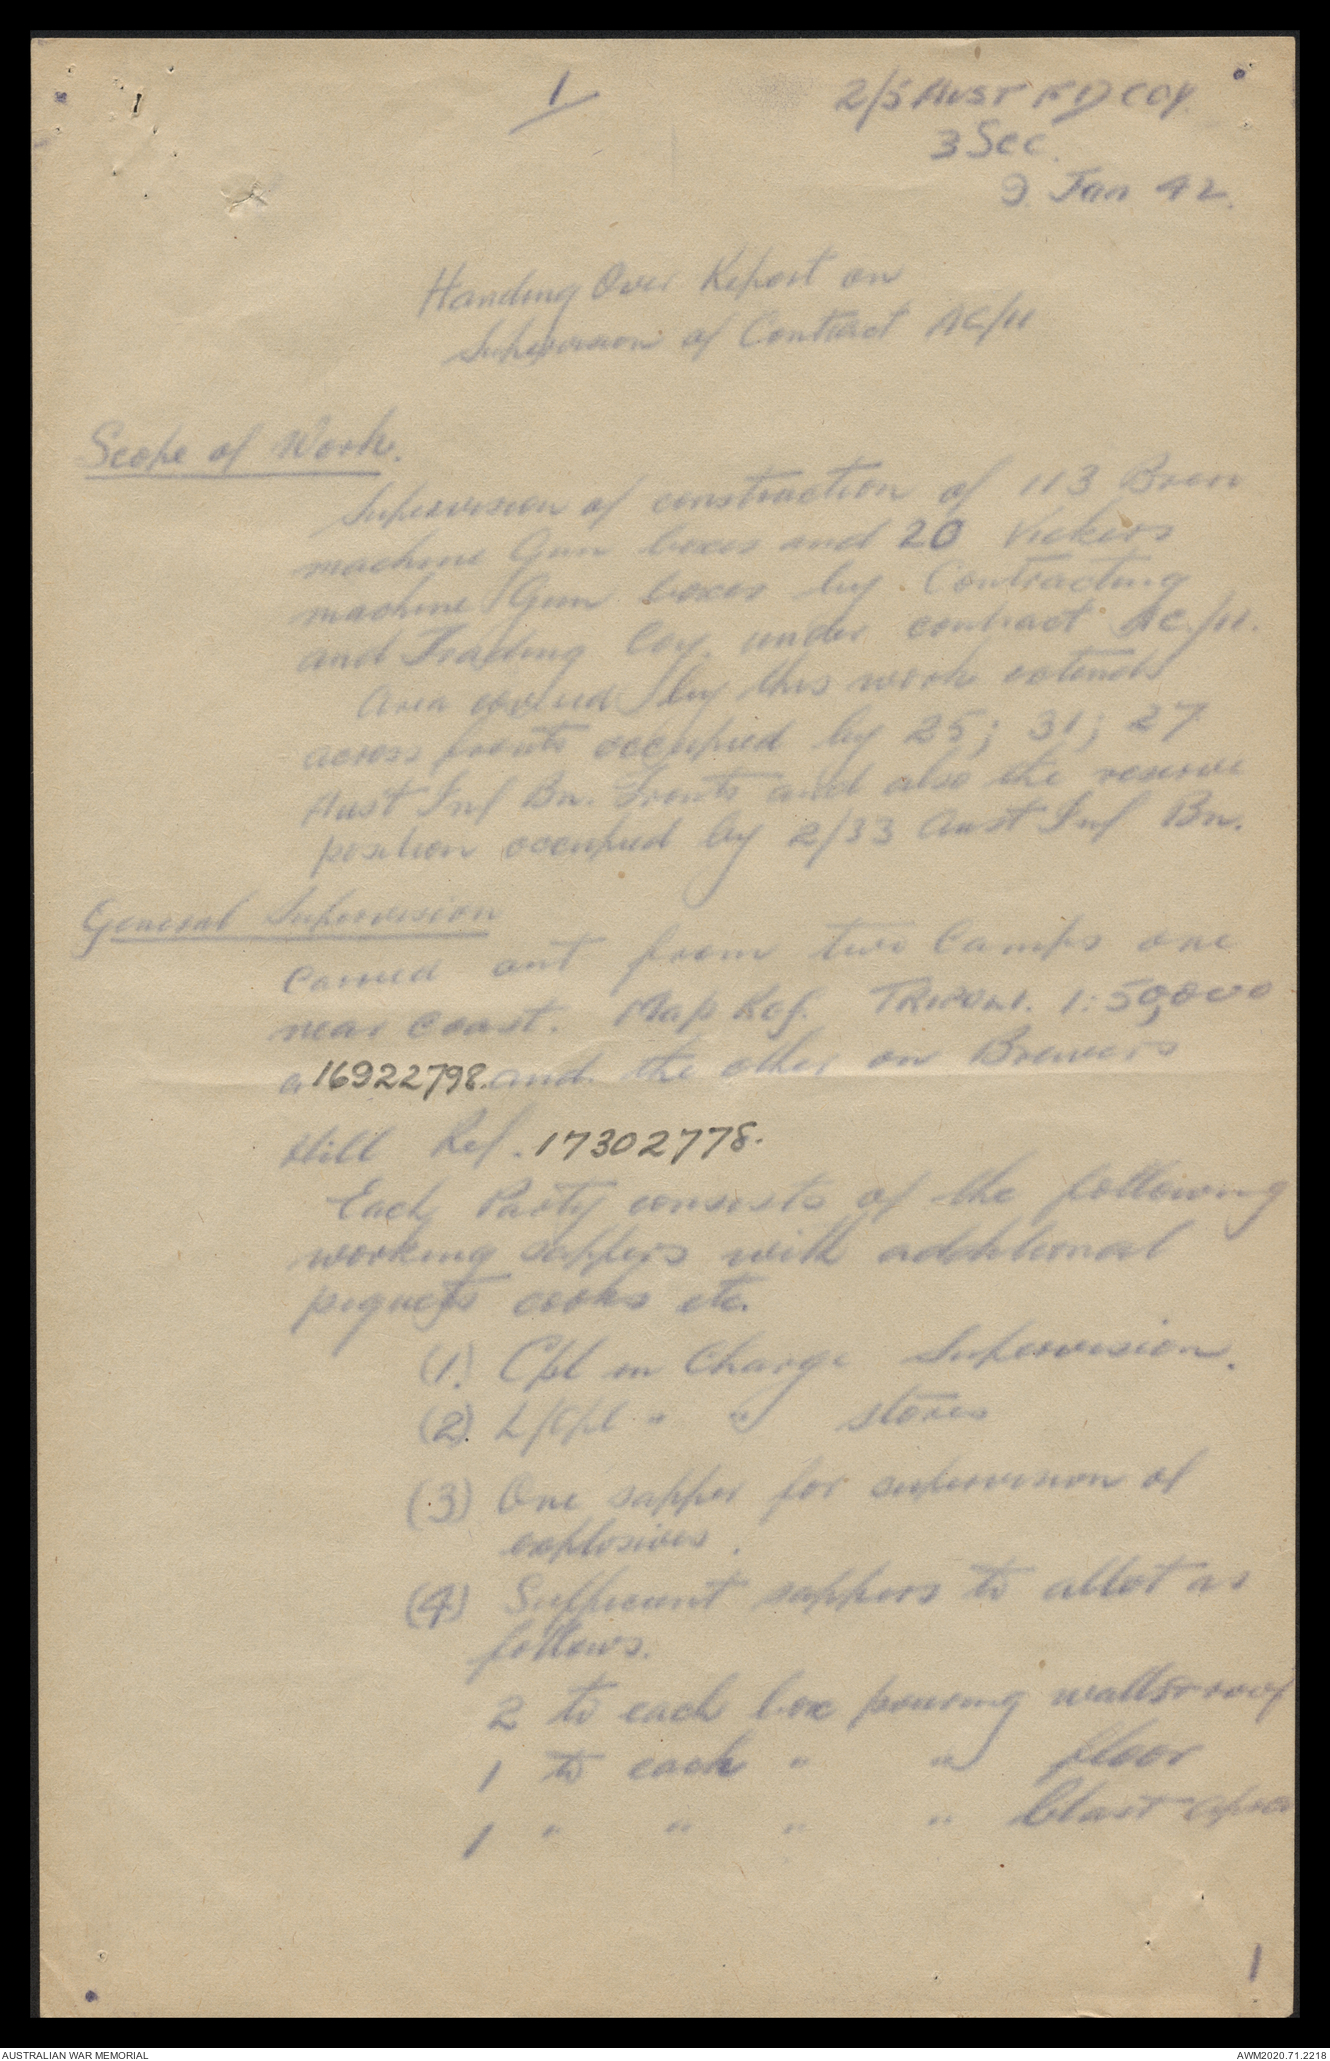 1
2/5 Aust FD COY.
3 Sec.
9 Jan 42.
Handing Over Report on
Supervision of Contract AC/11
Scope of Work.
Supervision of construction of 113 Bren
machine Gun boxes and 20 Vickers
machine Gun boxes by Contracting
and Trading Coy. under contract AC/11.
Area covered by this work extends
across fronts occupied by 25; 31; 27
Aust Inf Bn. Fronts and also the reserve
position occupied by 2/33 Aust Inf Bn.
General Supervision
Carried out from two Camps one
near coast. Map Ref. TRIPOLI. 1:50,000
a 16922798. and the other on Brewers
Hill Ref. 17302778.
Each Party consists of the following
working sappers with additional
piquets cooks etc.
(1.) Cpl in Charge Supervision.
(2) L/Cpl " " stores
(3) One sapper for supervision of
explosives.
(4) Sufficient sappers to allot as
follows.
2 to each box pouring walls & roof
1 to each " " floor
1 " " " " blast
1
AUSTRALIAN WAR MEMORIAL
AWM2020.71.2218